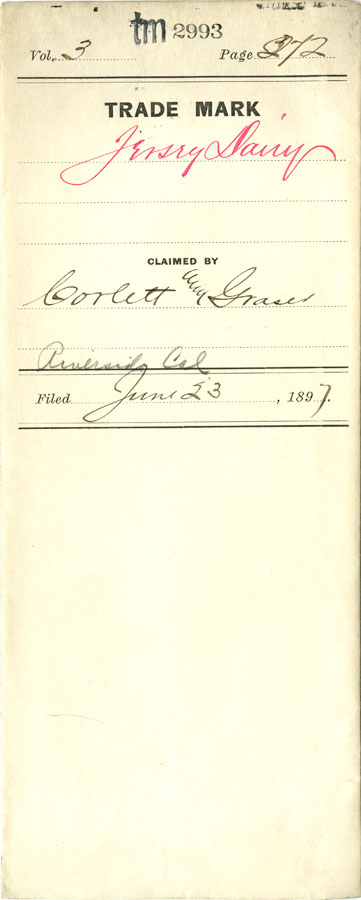 tm 2993
Vol. 3 Page 272
TRADE MARK
Jersey Dairy
CLAIMED BY
Corlett and Graser
Riverside Cal
Filed June 23, 1897.